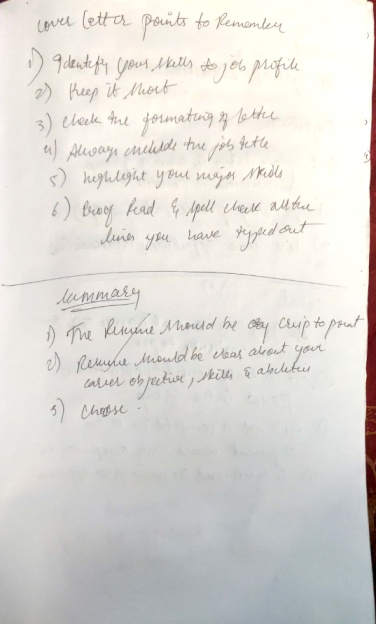 cover letter points to Remember
1) Identify your skills to job profile
2) Keep it short
3) check the formating of letter
4) Always include the job title
5) highlight your major skills
6) Proof Read & spell check all the
lines you have typed out
Summary
1) The Resume should be crisp to point
2) Resume should be clear about your
career objective, skills & abilities
3) Choose